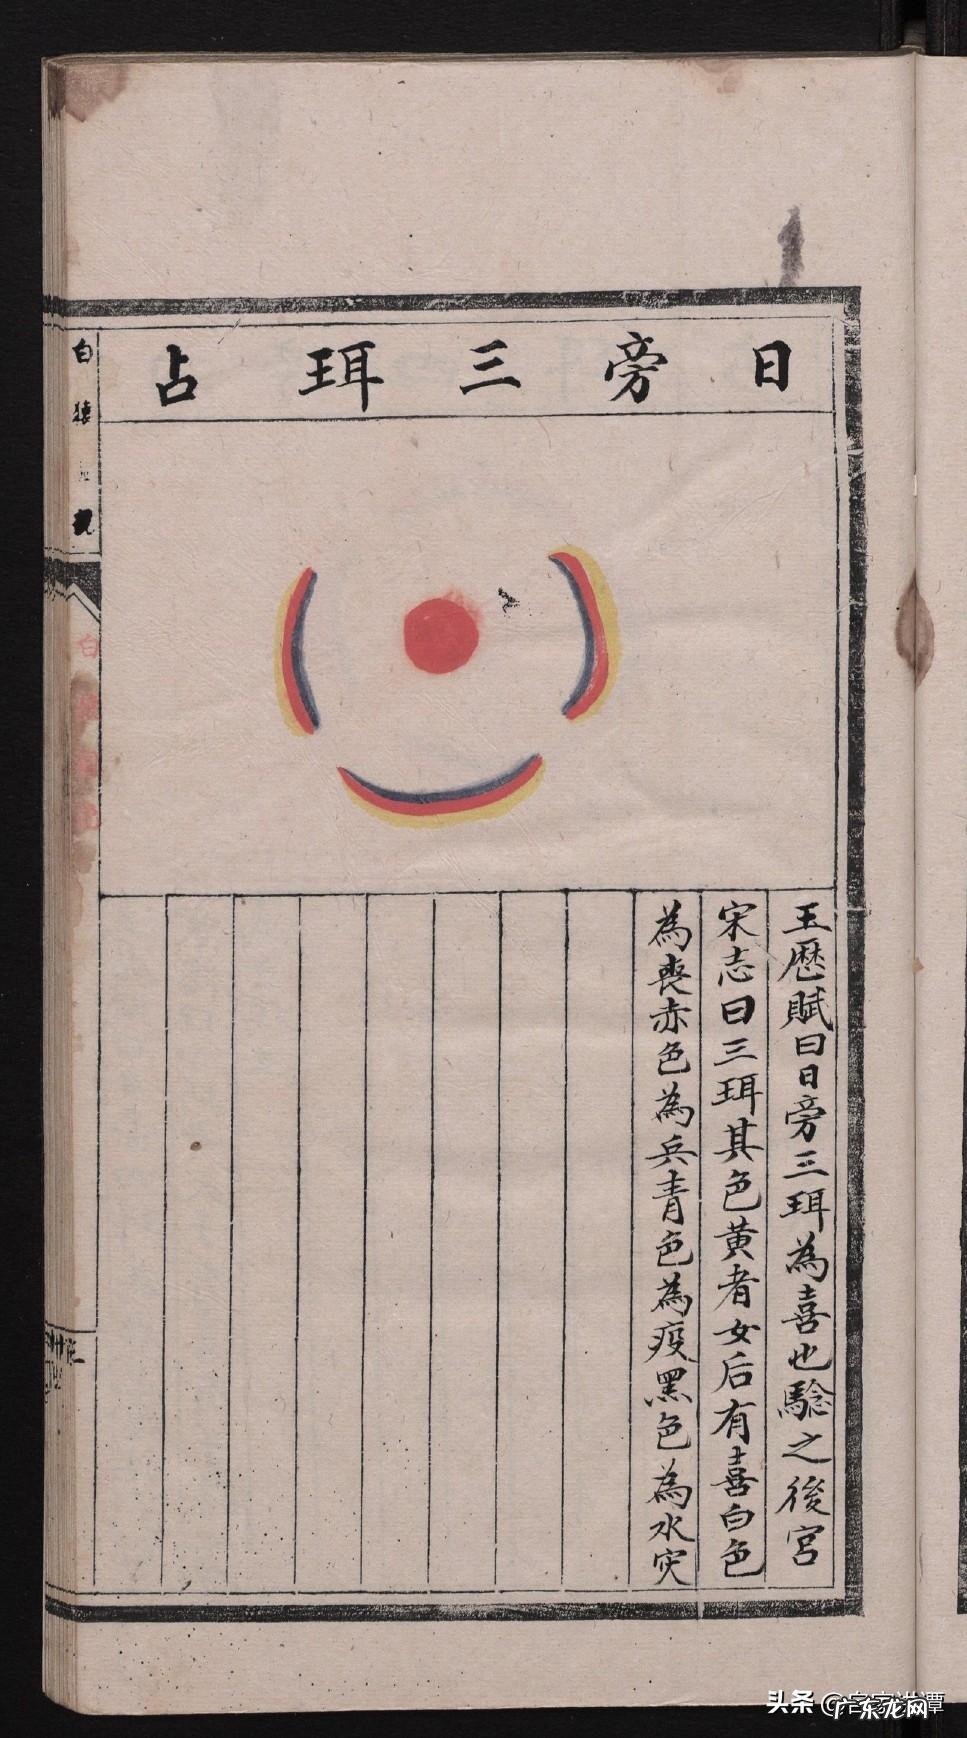 日旁三珥占
玉歷賦曰日旁三珥為喜也驗之後宮
宋志曰三珥其色黃者女后有喜白色
為喪赤色為兵青色為疫黑色為水灾
白猿
头条
广东龙网